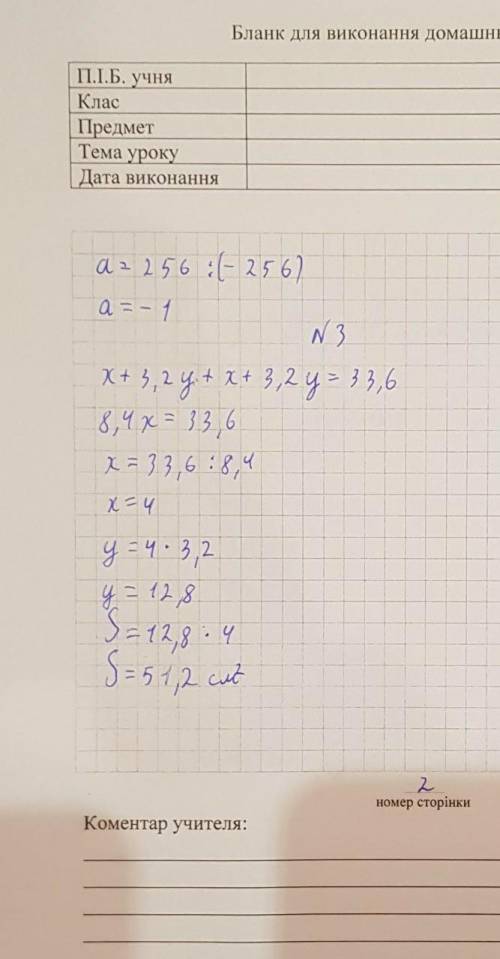 Бланк для виконання домашнь
П.І.Б. учня
Клас
Предмет
Тема уроку
Дата виконання
a = 256 : (- 256)
a = - 1
N 3
x + 3,2 y + x + 3,2 y = 33,6
8,4 x = 33,6
x = 33,6 : 8,4
x = 4
y = 4 · 3,2
y = 12,8
S = 12,8 · 4
S = 51,2 см²
2
номер сторінки
Коментар учителя: